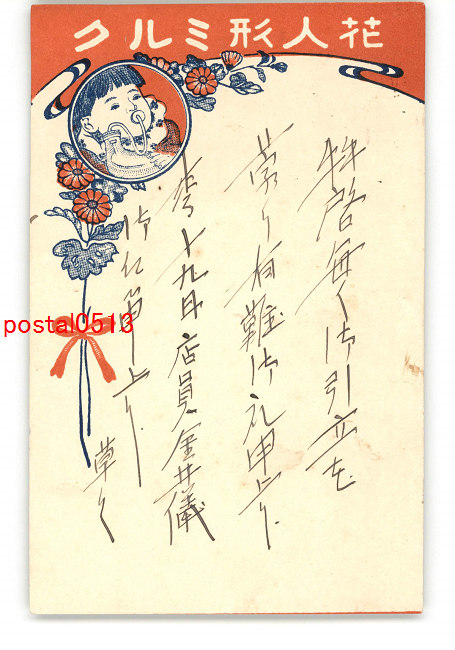 花人形ミルク
拝啓毎々御引立を
蒙り有難御礼申上候
来ル十九日店員金井儀
御伺申上候
草々
postal0513